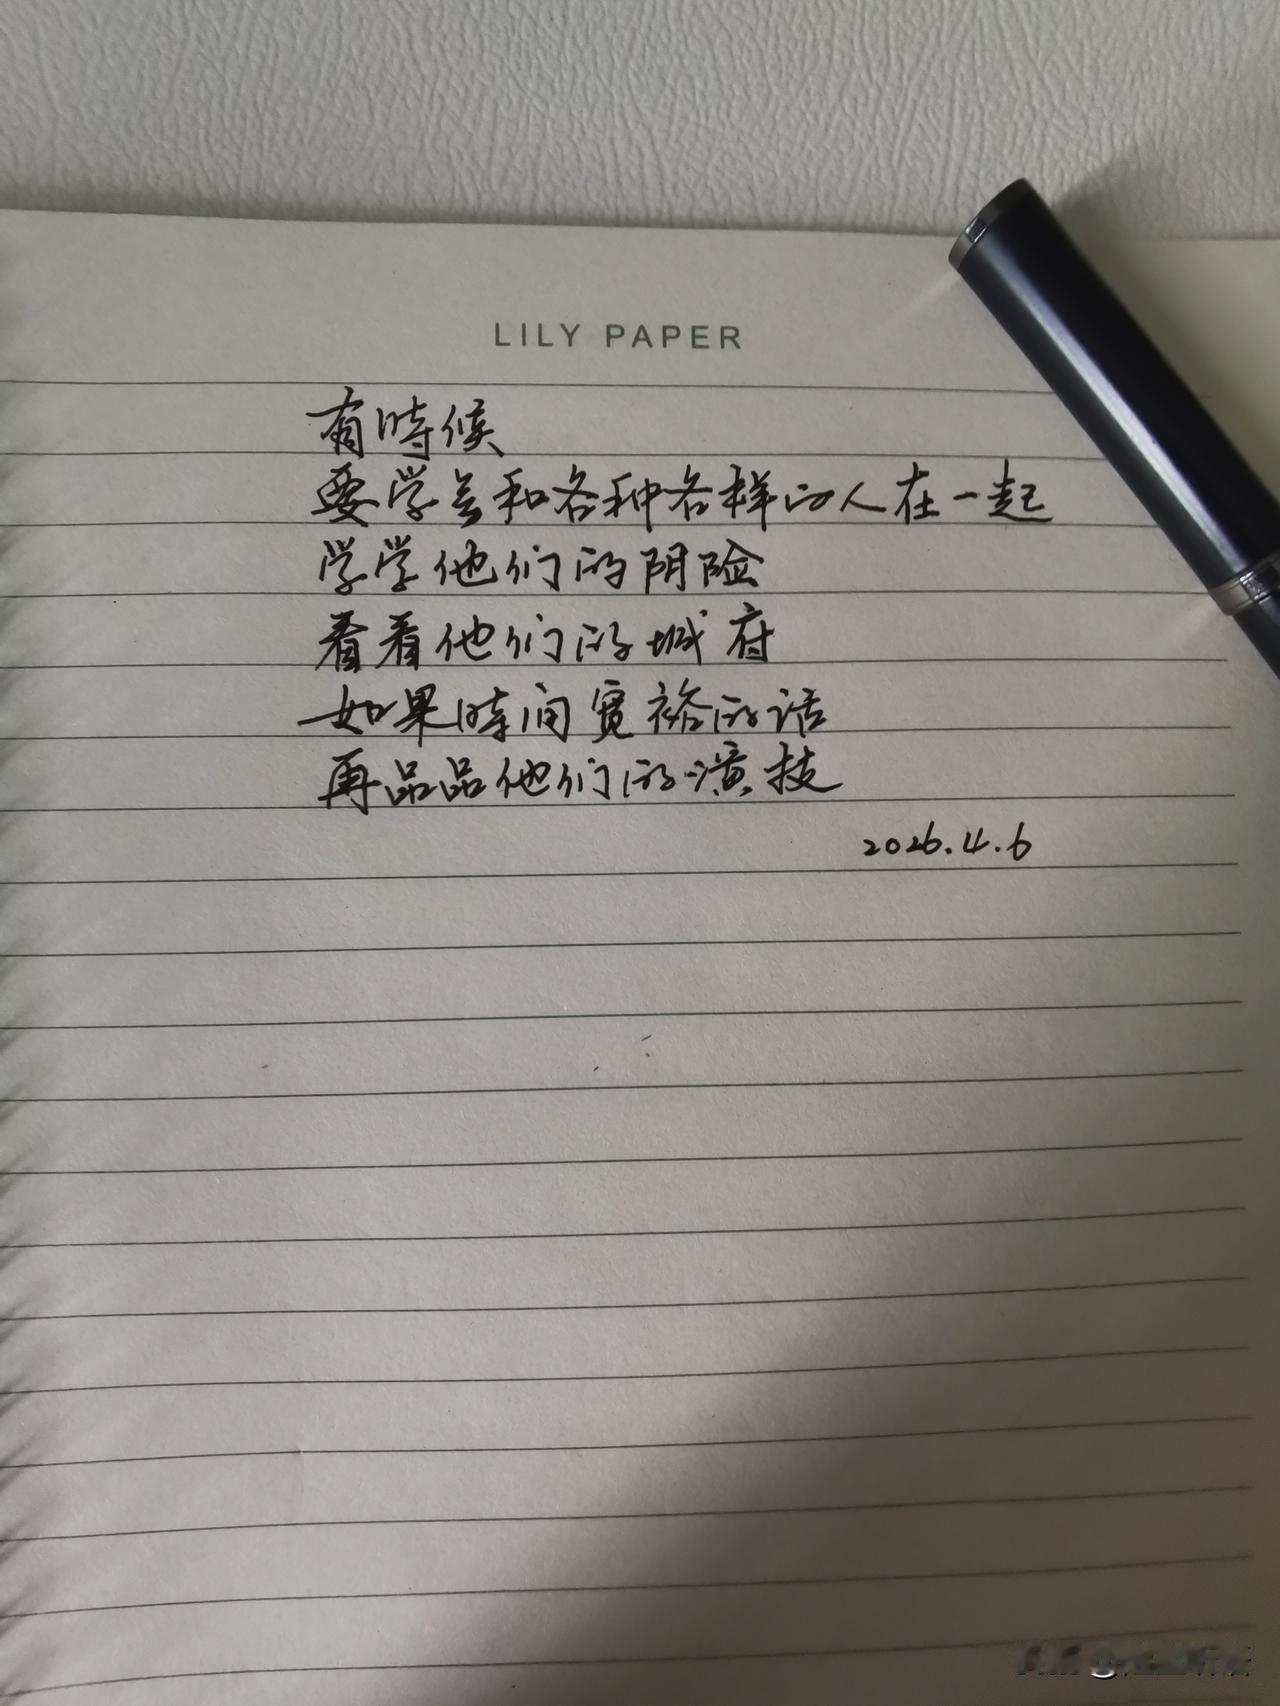 LILY PAPER
有時候
要学会和各种各样的人在一起
学学他们的阴险
看看他们的城府
如果時间宽裕的话
再品品他们的演技
2026.4.6